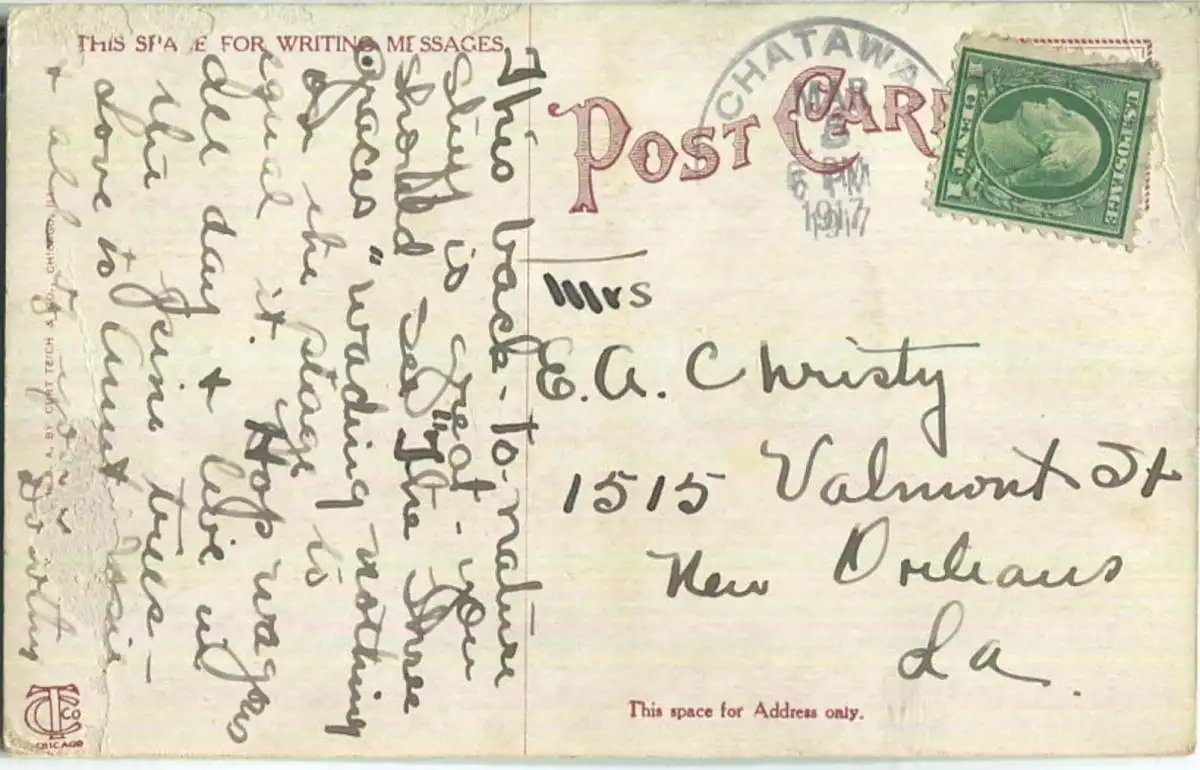 THIS SPACE FOR WRITING MESSAGES
POST CARD
CHATAWA
MAR
8
6 PM
1917
U.S. POSTAGE
1 CENT 1
This back-to-nature
stuff is great- you
should see "The Three
Graces" wading nothing
on the stage to
equal it. Hop wagons
all day & live in
the pine trees-
Love to Aunt Josie
& all of you
Do write
Mrs
E. A. Christy
1515 Valmont St
New Orleans
La.
This space for Address only.
BY CURT TEICH & CO., CHICAGO
CT CO
CHICAGO